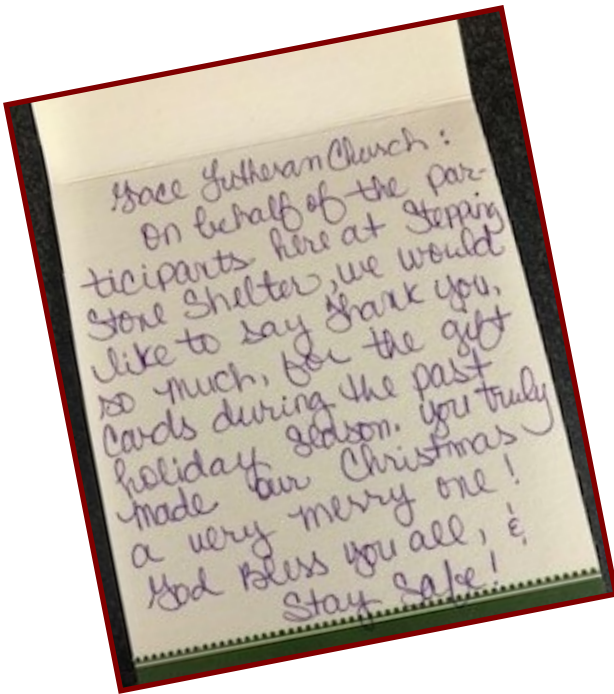 Grace Lutheran Church:
On behalf of the par-
ticipants here at Stepping
Stone Shelter, we would
like to say thank you,
so much, for the gift
cards during the past
holiday season. You truly
made our Christmas
a very merry one!
God Bless you all, &
Stay Safe!